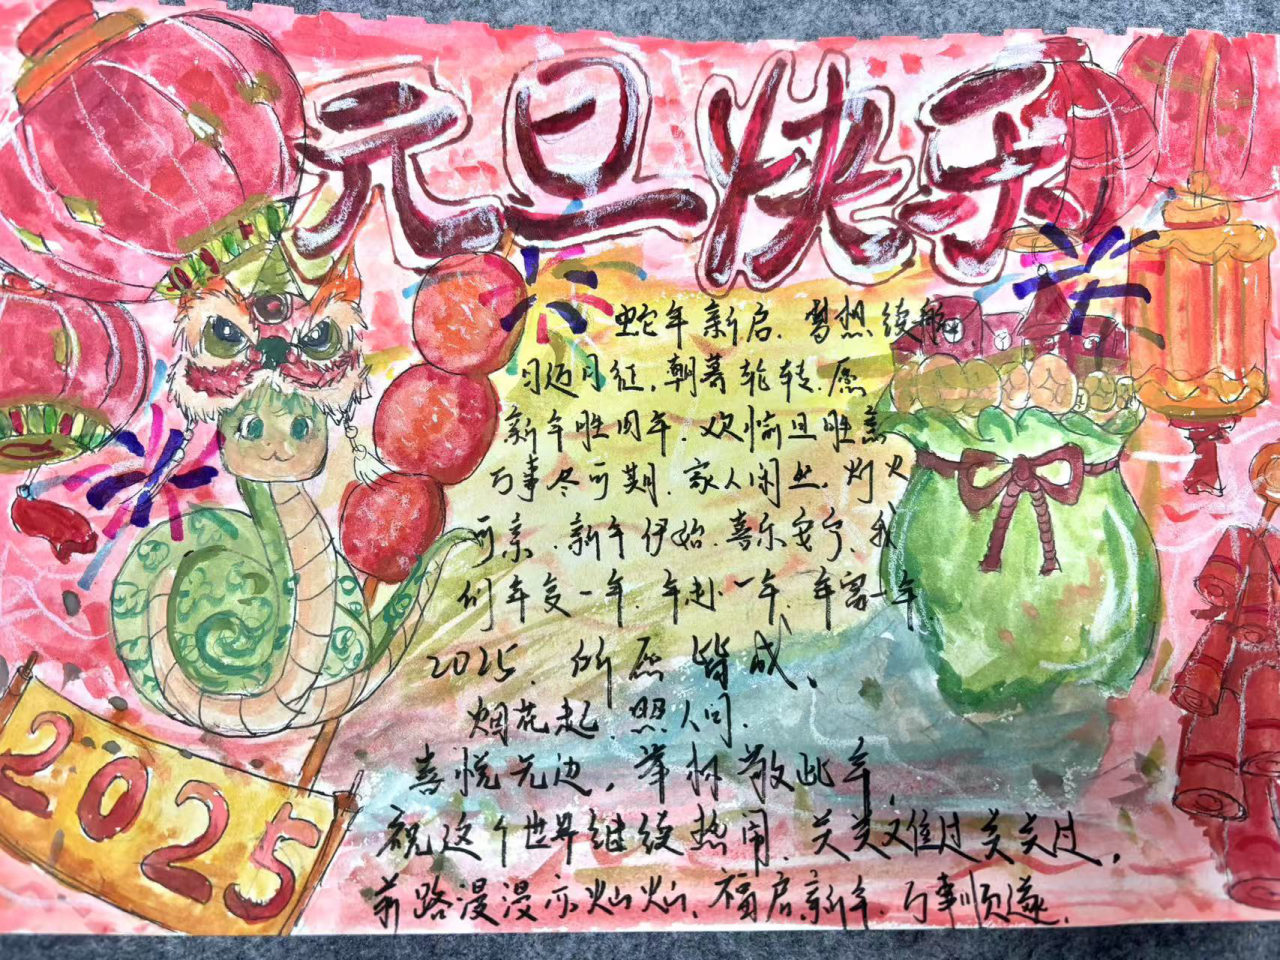 元旦快乐
蛇年新启.梦想续航
日迈月征.朝暮轮转.愿
新年胜旧年.欢愉且胜意
万事尽可期.家人闲坐.灯火
可亲.新年伊始.喜乐安宁.我
们年复一年.年赴一年.年富一年
2025.所愿皆成、
烟花起.照人间.
喜悦无边，举杯敬此年，
祝这个世界继续热闹.关关难过关关过，
前路漫漫亦灿灿.福启新年.万事顺遂.
2025